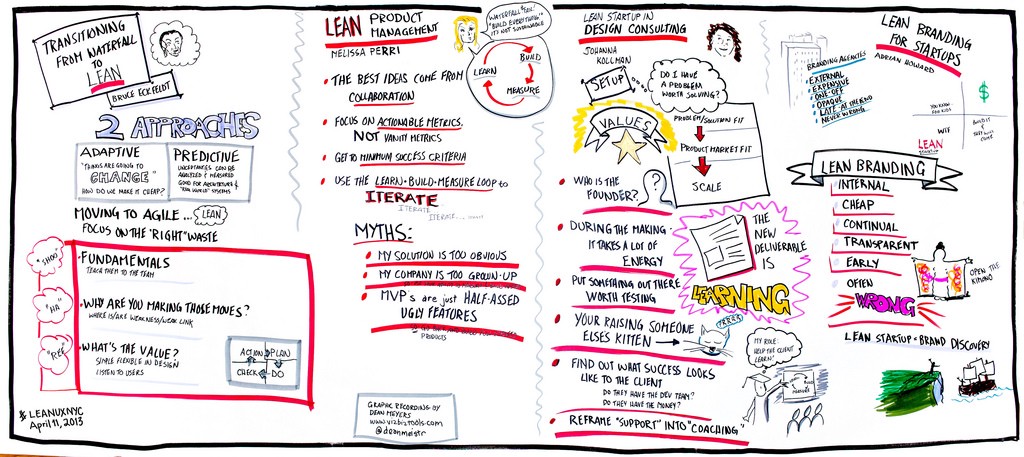 TRANSITIONING
FROM WATERFALL
TO
LEAN
BRUCE ECKFELDT
2 APPROACHES
ADAPTIVE
"THINGS ARE GOING TO
CHANGE"
HOW DO WE MAKE IT CHEAP?
PREDICTIVE
UNCERTAINTIES CAN BE
ANALYZED & MEASURED
GOOD FOR ARCHITECTURE &
"REAL WORLD" SYSTEMS
MOVING TO AGILE... LEAN
FOCUS ON THE "RIGHT" WASTE
"SHOO"
• FUNDAMENTALS
TEACH THEM TO THE TEAM
"HA"
• WHY ARE YOU MAKING THOSE MOVES?
WHERE IS/ARE WEAKNESS/WEAK LINK
"REE"
• WHAT'S THE VALUE?
SIMPLE FLEXIBLE IN DESIGN
LISTEN TO USERS
ACTION PLAN
CHECK DO
# LEANUXNYC
April 11, 2013
LEAN PRODUCT
MANAGEMENT
MELISSA PERRI
WATERFALL "FAIL"
"BUILD EVERYTHING"
IT'S NOT SUSTAINABLE
BUILD
LEARN
MEASURE
• THE BEST IDEAS COME FROM
COLLABORATION
• FOCUS ON ACTIONABLE METRICS,
NOT VANITY METRICS
• GET TO MINIMUM SUCCESS CRITERIA
• USE THE LEARN-BUILD-MEASURE LOOP to
ITERATE
ITERATE
ITERATE...
MYTHS:
• MY SOLUTION IS TOO OBVIOUS
• MY COMPANY IS TOO GROWN-UP
• MVP's are just HALF-ASSED
UGLY FEATURES
PRODUCTS
GRAPHIC RECORDING BY
DEAN MEYERS
www.vizbiztools.com
@deanmeistr
LEAN STARTUP IN
DESIGN CONSULTING
JOHANNA
KOLLMAN
SETUP
DO I HAVE
A PROBLEM
WORTH SOLVING?
VALUES
PROBLEM/SOLUTION FIT
PRODUCT MARKET FIT
SCALE
• WHO IS THE
FOUNDER?
?
• DURING THE MAKING
IT TAKES A LOT OF
ENERGY
• PUT SOMETHING OUT THERE
WORTH TESTING
THE
NEW
DELIVERABLE
IS
LEARNING
• YOUR RAISING SOMEONE
ELSES KITTEN
• FIND OUT WHAT SUCCESS LOOKS
LIKE TO THE CLIENT
DO THEY HAVE THE DEV TEAM?
DO THEY HAVE THE MONEY?
• REFRAME "SUPPORT" INTO "COACHING"
MY ROLE:
HELP THE CLIENT
LEARN!
LEAN BRANDING
FOR STARTUPS
ADRIAN HOWARD
BRANDING AGENCIES
• EXTERNAL
• EXPENSIVE
• ONE-OFF
• OPAQUE
• LATE AT THE END
• NEVER WRONG
$
WTF
LEAN
STARTUP
LEAN BRANDING
INTERNAL
CHEAP
CONTINUAL
TRANSPARENT
EARLY
OFTEN
WRONG
OPEN THE
KIMONO
LEAN STARTUP = BRAND DISCOVERY